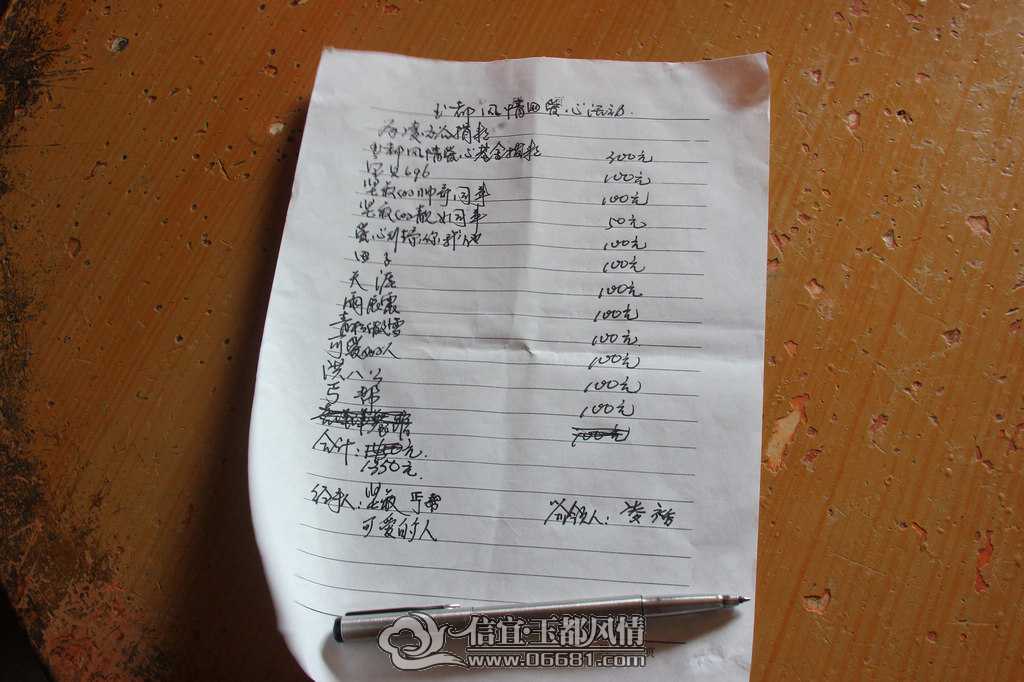 玉都风情网爱心活动
捐款
玉都风情爱心基金捐款 300元
宝贝696 100元
坚叔的帅哥同事 100元
坚叔的靓女同事 50元
爱心 你我他 100元
田子 100元
天涯 100元
雨 100元
青松傲雪 100元
可爱的人 100元
洪八公 100元
丐帮 100元
100元
合计: 元.
1350元.
经手人:坚叔 丐帮 领人:
可爱的人
信宜·玉都风情
www.06681.com